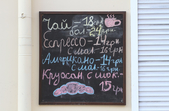 Чай - 18грн
бол - 24грн
Еспресо - 14грн
с мол - 16грн
Американо - 14грн
с мол - 18грн
Круасан с шок -
15грн